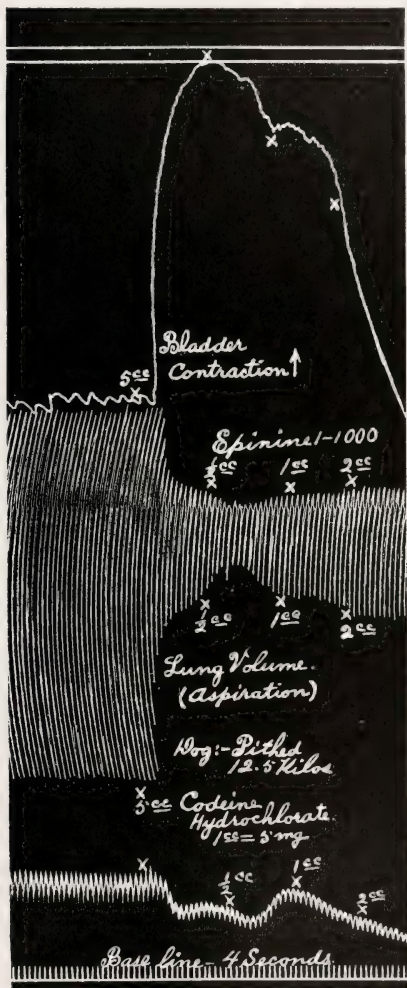 5cc
Bladder
Contraction ↑
Epinine 1-1000
½cc 1cc 2cc
½cc 1cc 2cc
Lung Volume.
(Aspiration)
Dog:- Pithed
12.5 Kilos
5cc Codeine
Hydrochlorate.
1cc = 5mg
½cc 1cc 2cc
Base line - 4 Seconds.